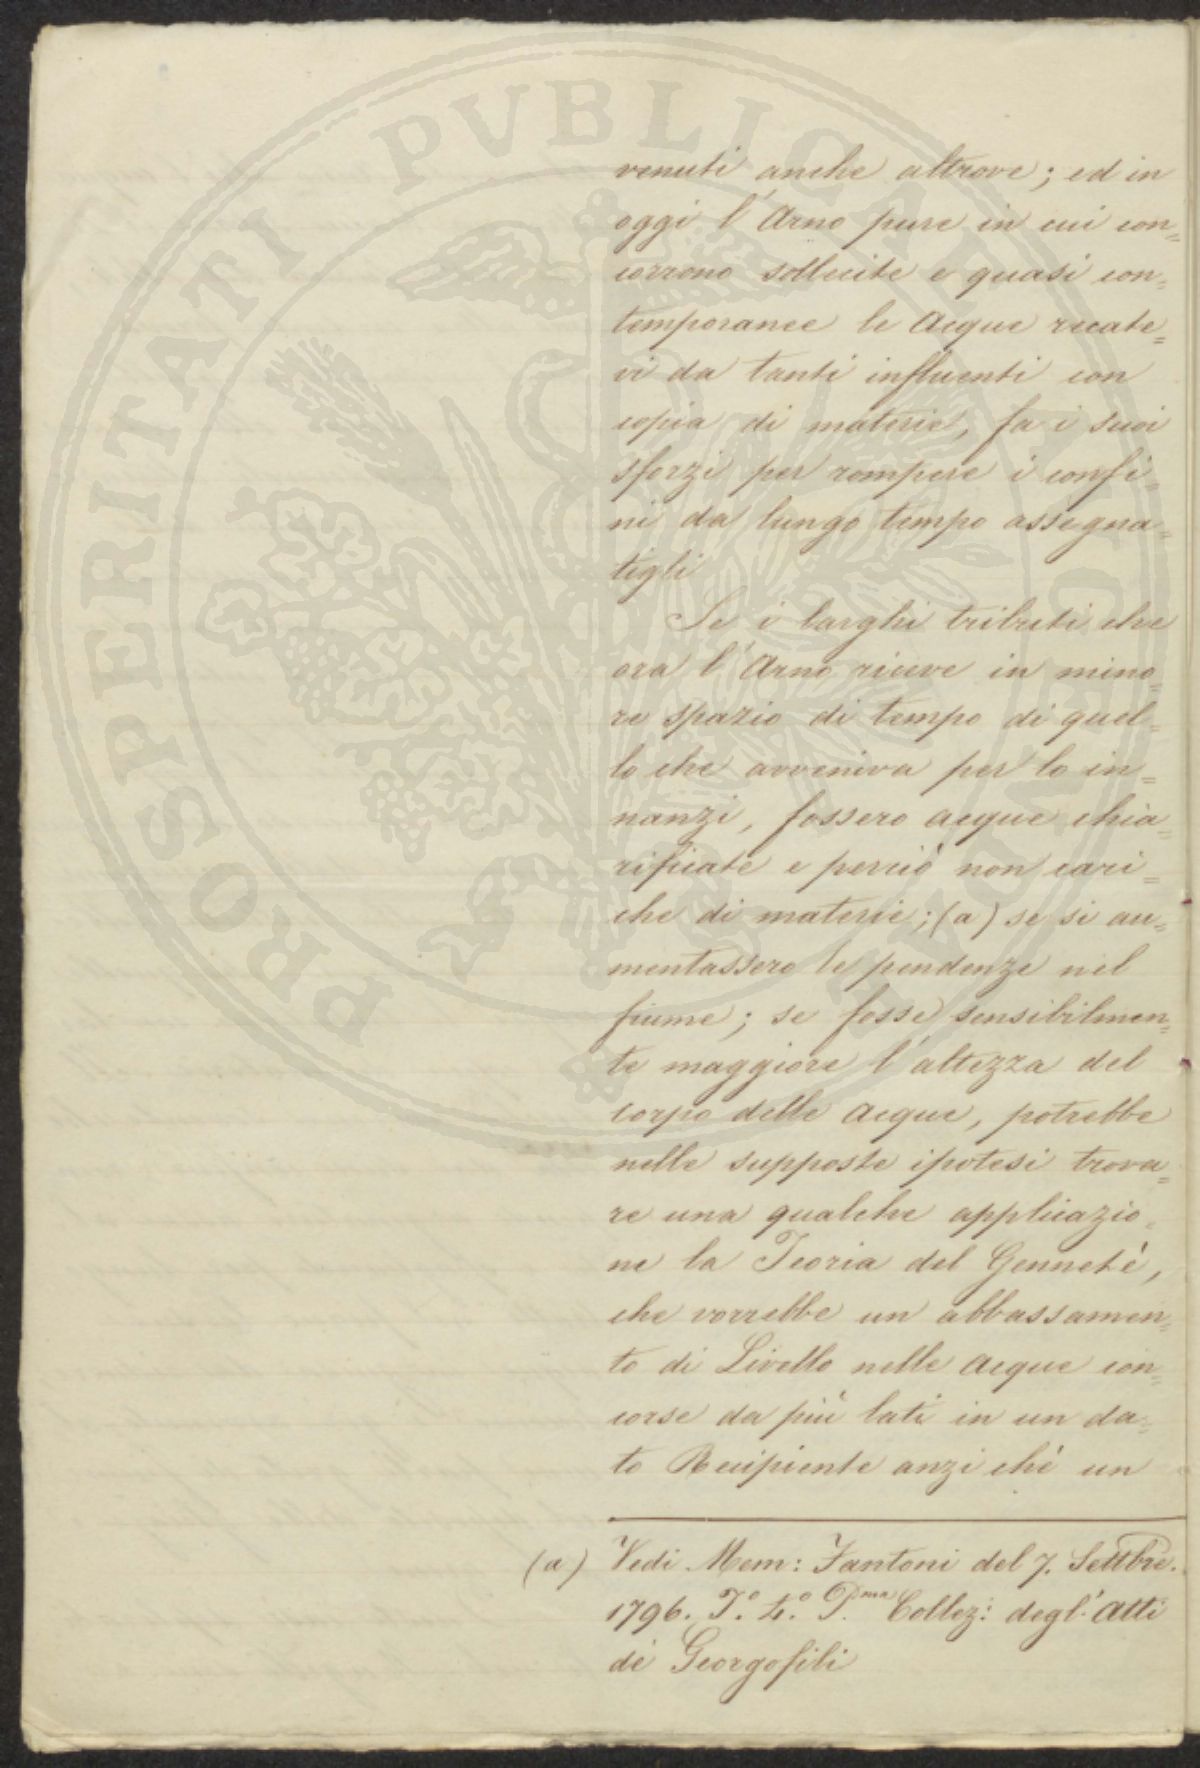 PROSPERITATI PVBLICAE AVGENDAE
venuti anche altrove; ed in
oggi l'Arno pure in cui con=
corrono sollecite e quasi con=
temporanee le Acque recate=
vi da tanti influenti con
copia di materie, fa i suoi
sforzi per rompere i confi=
ni da lungo tempo assegna=
tigli
Se i larghi tributi che
ora l'Arno riceve in mino=
re spazio di tempo di quel=
lo che avveniva per lo in=
nanzi, fossero acque chia=
rificate e perciò non cari=
che di materie; (a) se si au=
mentassero le pendenze nel
fiume; se fosse sensibilmen=
te maggiore l'altezza del
corpo delle Acque, potrebbe
nelle supposte ipotesi trova=
re una qualche applicazio=
ne la Teoria del Genneté,
che vorrebbe un abbassamen=
to di Livello nelle Acque con=
corse da più lati in un da=
to Recipiente anzi chè un
(a) Vedi Mem: Fantoni del 7. Settbre.
1796. T.º 4.º P.ma Collez: degl'Atti
dè Georgofili